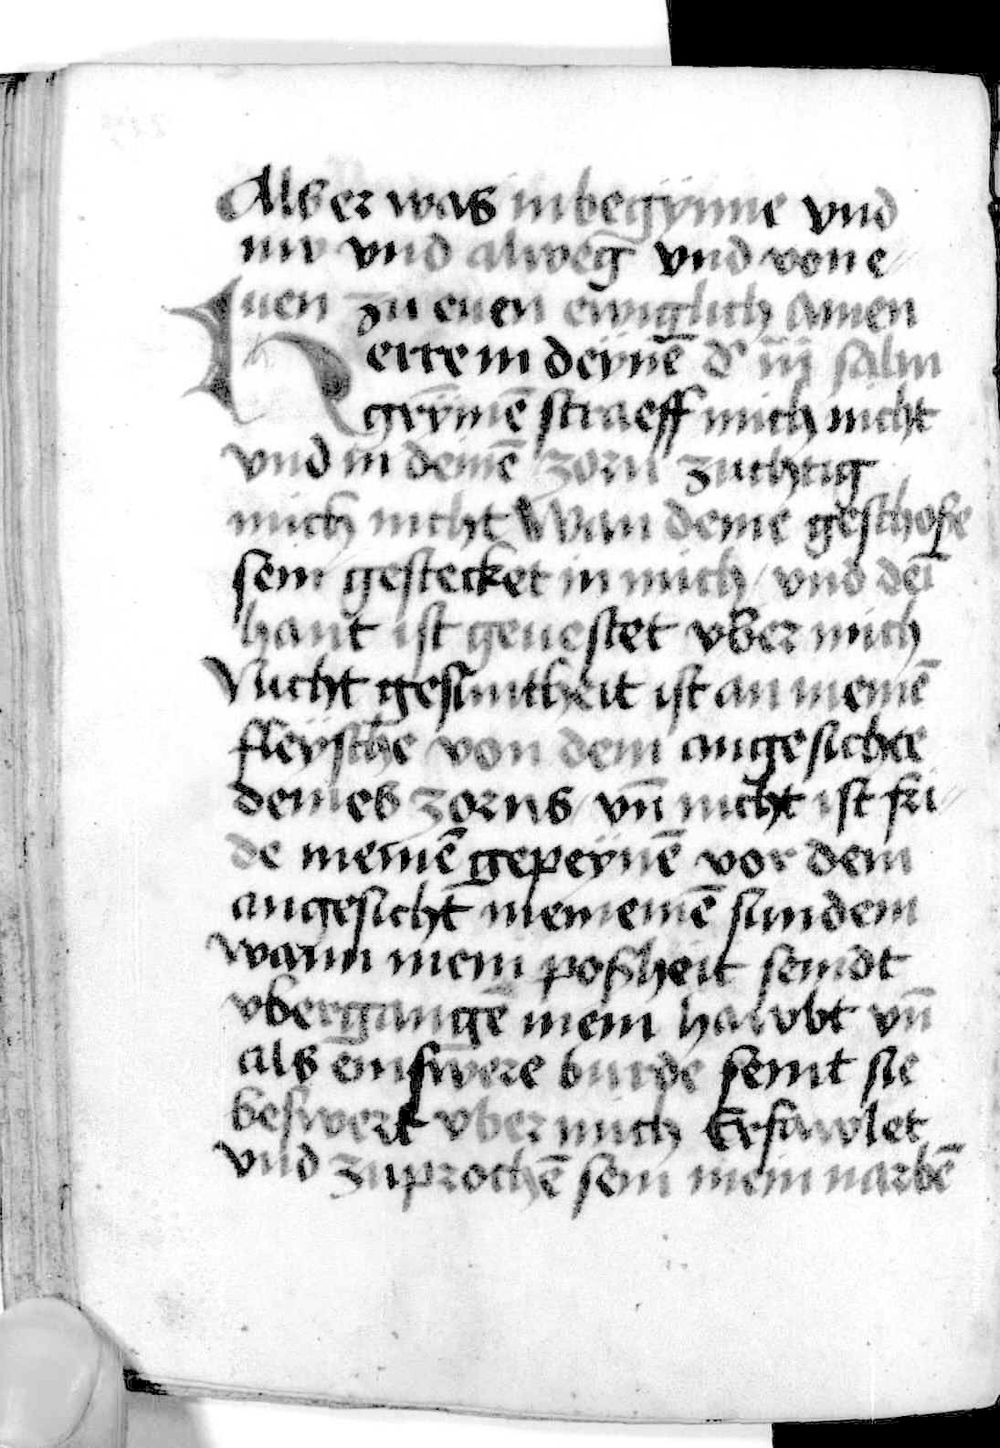 Als er was in begÿnne vnd
nw vnd alweg vnd von e⸗
wen zu ewen ewiglich Amen
Herre in deÿnē dᵉ iij salm
grÿmē straeff mich nicht
vnd in deinē zorn zuchtig
mich nicht Wan deine geschoße
sein gestecket in mich / vnd dei
hant ist geuestet vber mich
Nicht gesuntheit ist an meinē
fleÿsche von dem angesichte
deines zorns / vn̄ nicht ist fri⸗
de meinē gepeÿnē vor dem
angesicht meinemē sundem
wann mein poßheit seindt
vbergangē mein hawbt vn̄
als ein swere burde seint sie
beswert vber mich Erfawlet
vnd zuprochē sein mein narbē